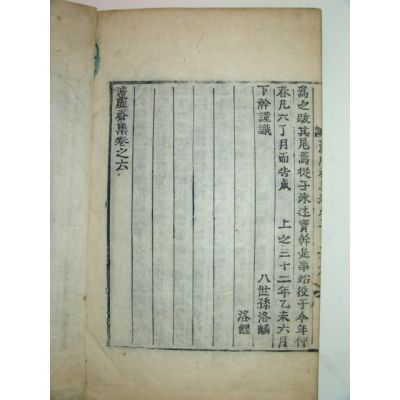 為之跋其尾焉從子泳述實幹是事始役于今年仲
春凡六月而告成 上之三十二年乙未六月
下澣謹識 八世孫洛麟
洛鯉
澹虛齋集卷之六